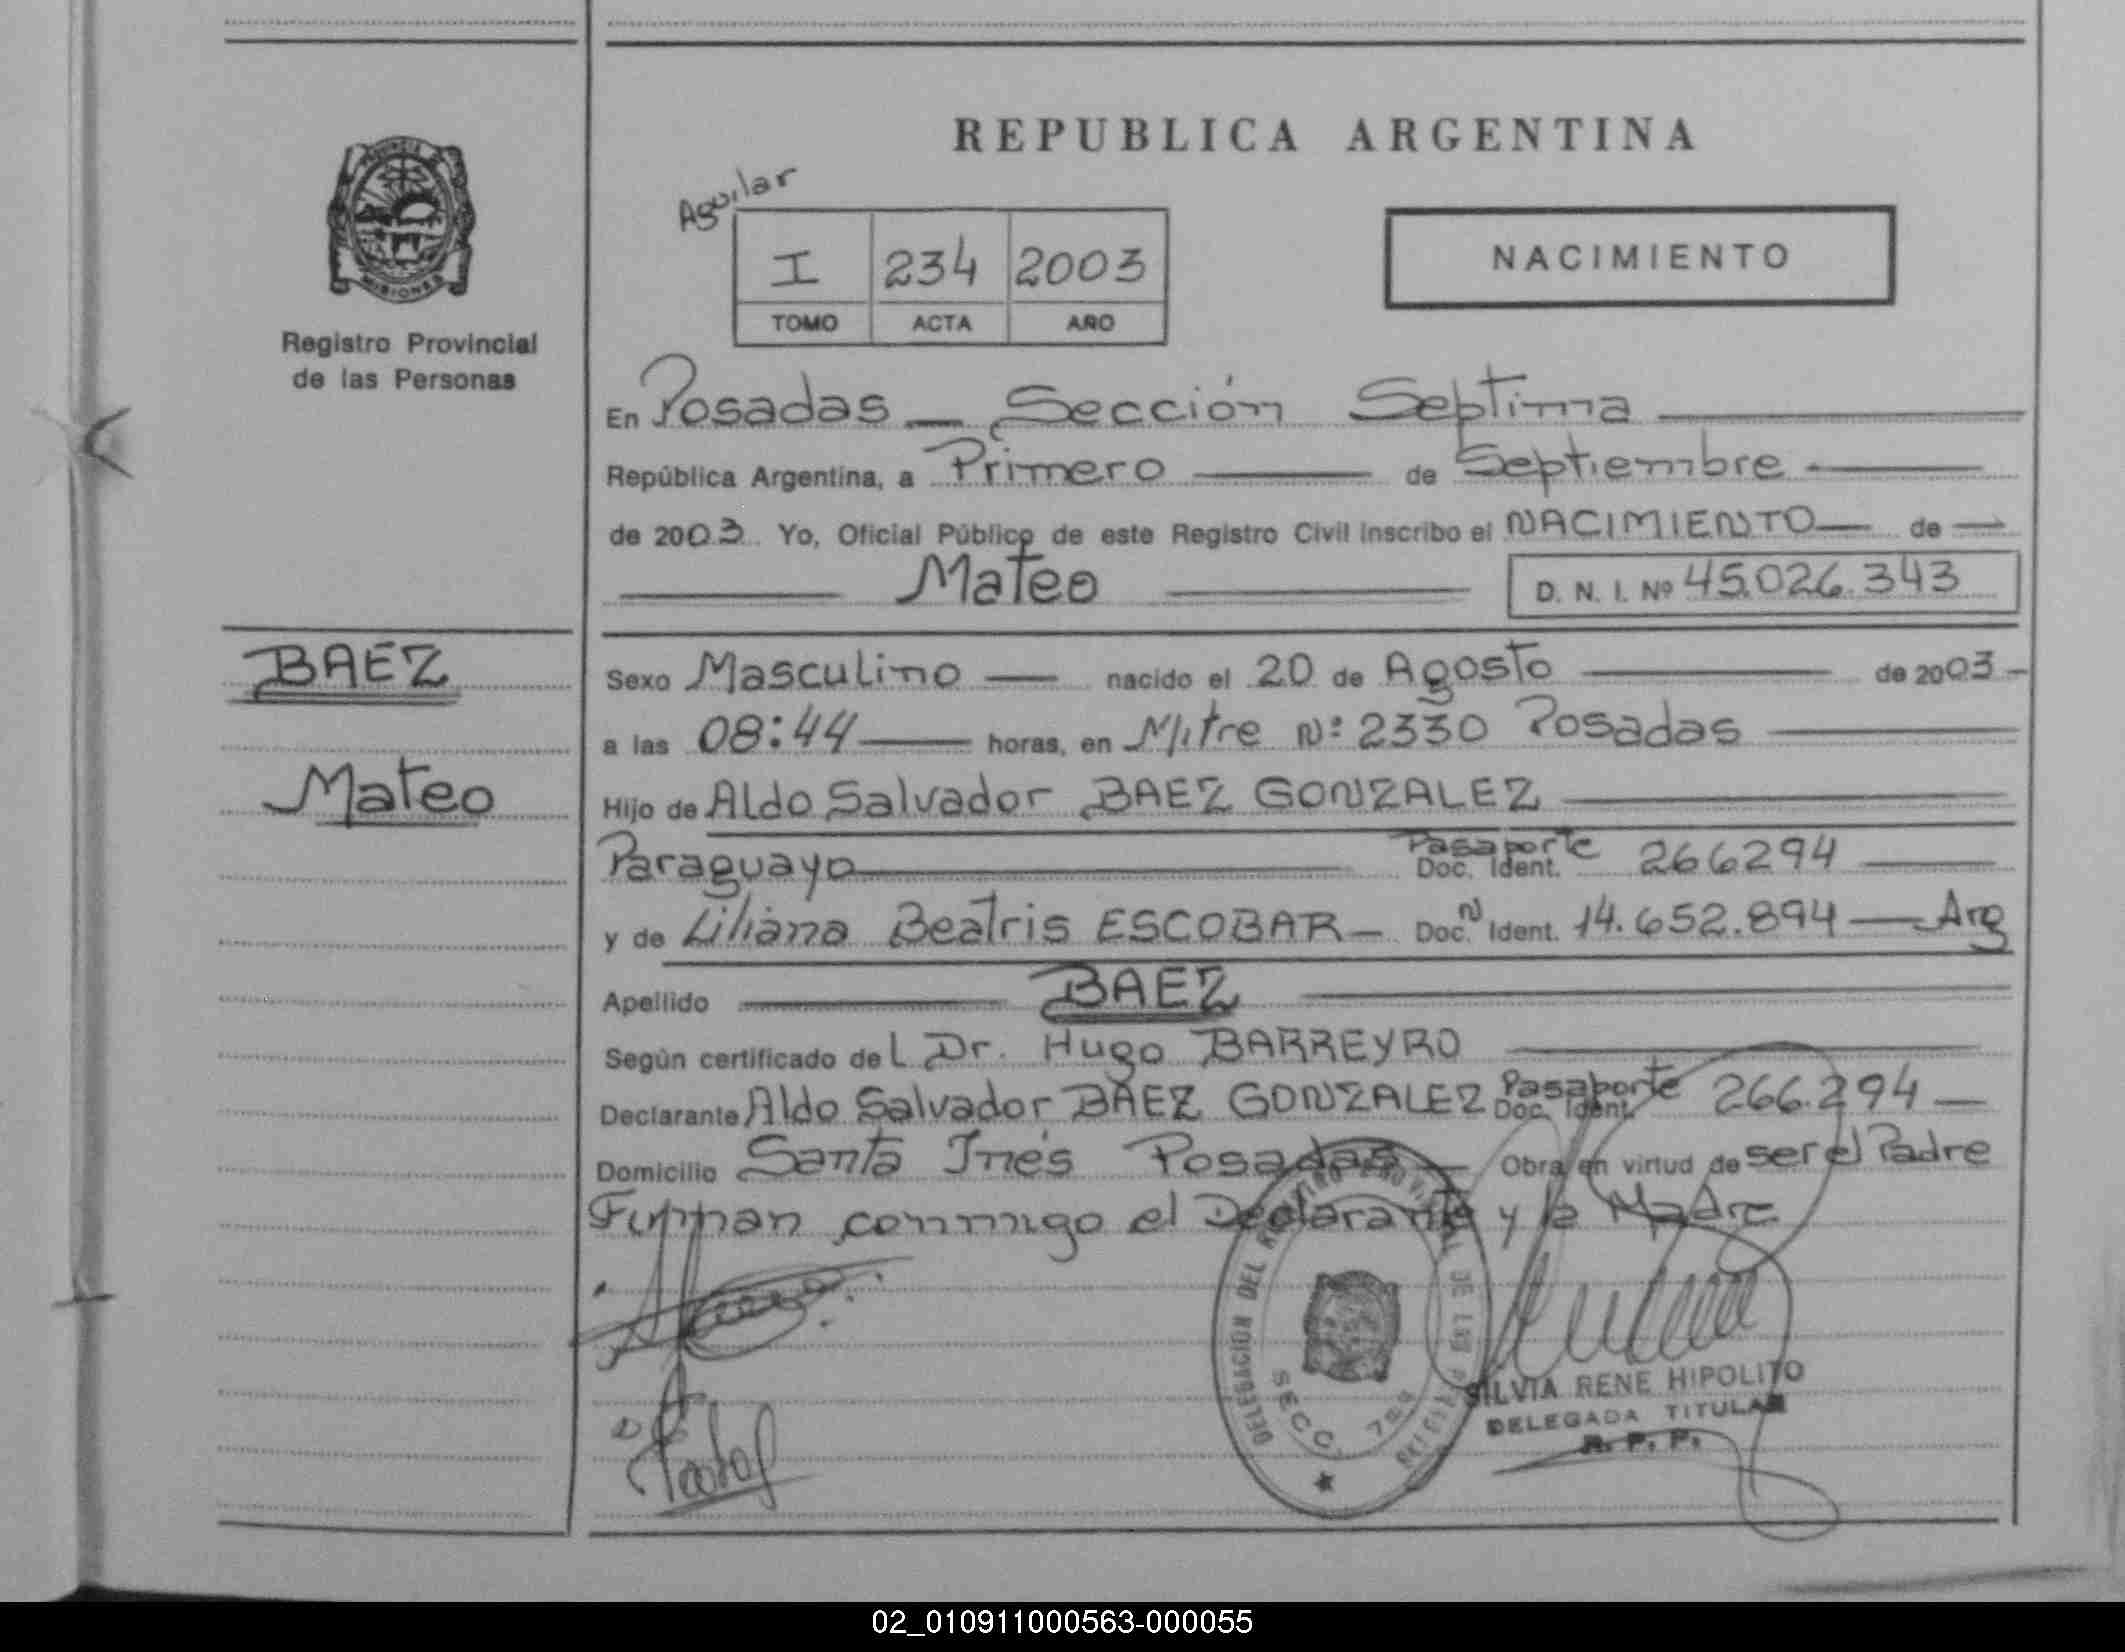 REPUBLICA ARGENTINA
Aguilar
I 234 2003
TOMO ACTA AÑO
NACIMIENTO
PROVINCIA DE
MISIONES
Registro Provincial
de las Personas
En Posadas — Sección Septima
República Argentina, a Primero de Septiembre
de 2003. Yo, Oficial Público de este Registro Civil inscribo el NACIMIENTO de
Mateo
D. N. I. Nº 45.026.343
BAEZ
Mateo
Sexo Masculino nacido el 20 de Agosto de 2003
a las 08:44 horas, en Mitre Nº 2330 Posadas
Hijo de Aldo Salvador BAEZ GONZALEZ
Paraguayo Pasaporte Doc. Ident. 266294
y de Liliana Beatris ESCOBAR Doc. N Ident. 14.652.894 Arg
Apellido BAEZ
Según certificado del Dr. Hugo BARREYRO
Declarante Aldo Salvador BAEZ GONZALEZ Pasaporte Doc. Ident. 266.294
Domicilio Santa Inés Posadas Obra en virtud de ser el Padre
Firman conmigo el Declarante y la Madre
DELEGACION DEL REGISTRO PROVINCIAL DE LAS PERSONAS
SECC. 7ma
SILVIA RENE HIPOLITO
DELEGADA TITULAR
R. P. P.
02_010911000563-000055